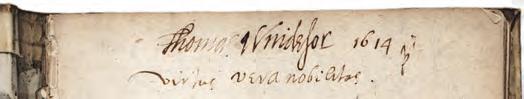 Thomas Windesor 1614
virtus vera nobilitas.